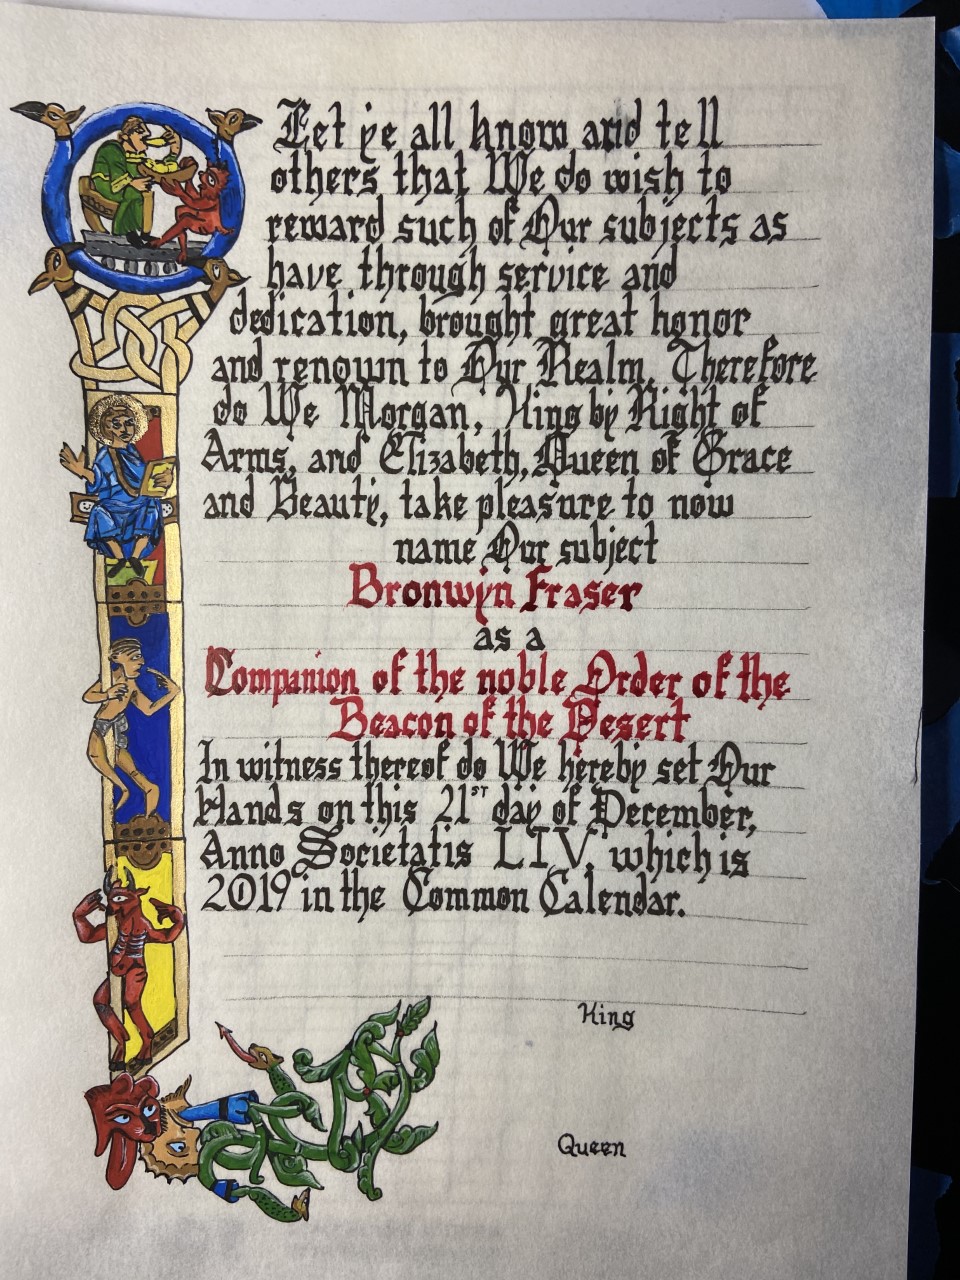 Let ye all know and tell
others that We do wish to
reward such of Our subjects as
have through service and
dedication, brought great honor
and renown to Our Realm. Therefore
do We Morgan, King by Right of
Arms, and Elizabeth, Queen of Grace
and Beauty, take pleasure to now
name Our subject
Bronwyn Fraser
as a
Companion of the noble Order of the
Beacon of the Desert
In witness thereof do We hereby set Our
Hands on this 21ST day of December,
Anno Societatis LIV, which is
2019 in the Common Calendar.
King
Queen